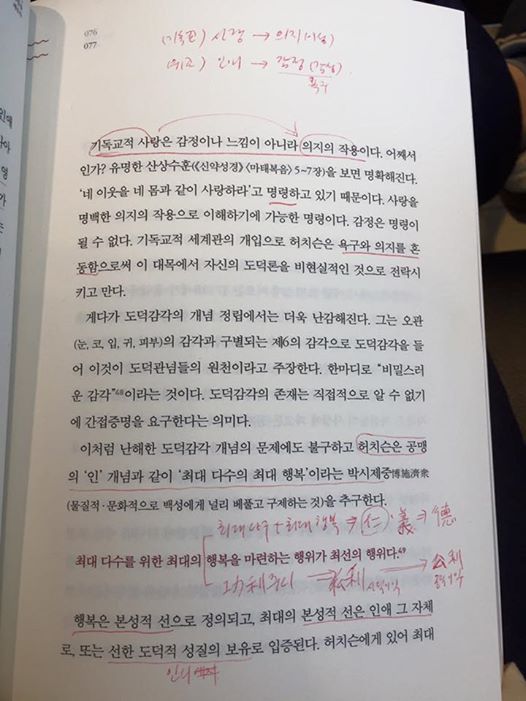 076
077
(기독교) 사랑 → 의지(이성)
(유교) 인의 → 감정(감성)
욕구
기독교적 사랑은 감정이나 느낌이 아니라 의지의 작용이다. 어째서
인가? 유명한 산상수훈(《신약성경》 〈마태복음〉 5~7장)을 보면 명확해진다.
'네 이웃을 네 몸과 같이 사랑하라'고 명령하고 있기 때문이다. 사랑을
명백한 의지의 작용으로 이해하기에 가능한 명령이다. 감정은 명령이
될 수 없다. 기독교적 세계관의 개입으로 허치슨은 욕구와 의지를 혼
동함으로써 이 대목에서 자신의 도덕론을 비현실적인 것으로 전락시
키고 만다.
게다가 도덕감각의 개념 정립에서는 더욱 난감해진다. 그는 오관
(눈, 코, 입, 귀, 피부)의 감각과 구별되는 제6의 감각으로 도덕감각을 들
어 이것이 도덕관념들의 원천이라고 주장한다. 한마디로 "비밀스러
운 감각"48이라는 것이다. 도덕감각의 존재는 직접적으로 알 수 없기
에 간접증명을 요구한다는 의미다.
이처럼 난해한 도덕감각 개념의 문제에도 불구하고 허치슨은 공맹
의 '인' 개념과 같이 '최대 다수의 최대 행복'이라는 박시제중博施濟衆
(물질적·문화적으로 백성에게 널리 베풀고 구제하는 것)을 추구한다.
최대다수 + 최대행복 ⇒ 仁·義 ⇒ 德
최대 다수를 위한 최대의 행복을 마련하는 행위가 최선의 행위다.49
功利주의 → 私利 → 公利
행복은 본성적 선으로 정의되고, 최대의 본성적 선은 인애 그 자체
로, 또는 선한 도덕적 성질의 보유로 입증된다. 허치슨에게 있어 최대